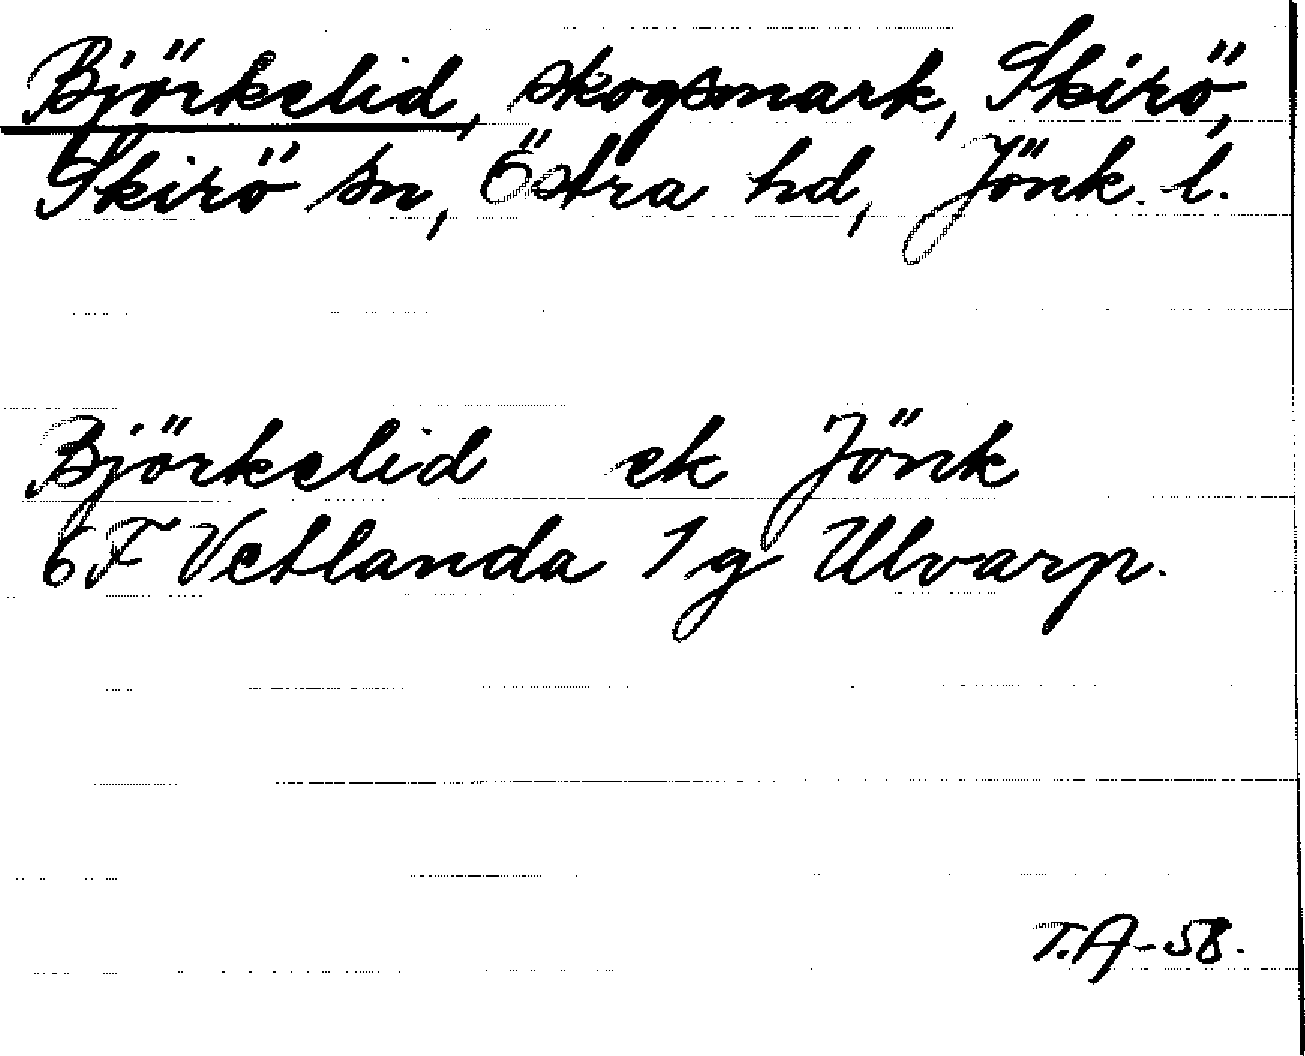 Björkelid, skogsmark, Skirö,
Skirö sn, Östra hd, Jönk. l.
Björkelid ek Jönk
6F Vetlanda 1 g Ulvarp.
T.A-58.